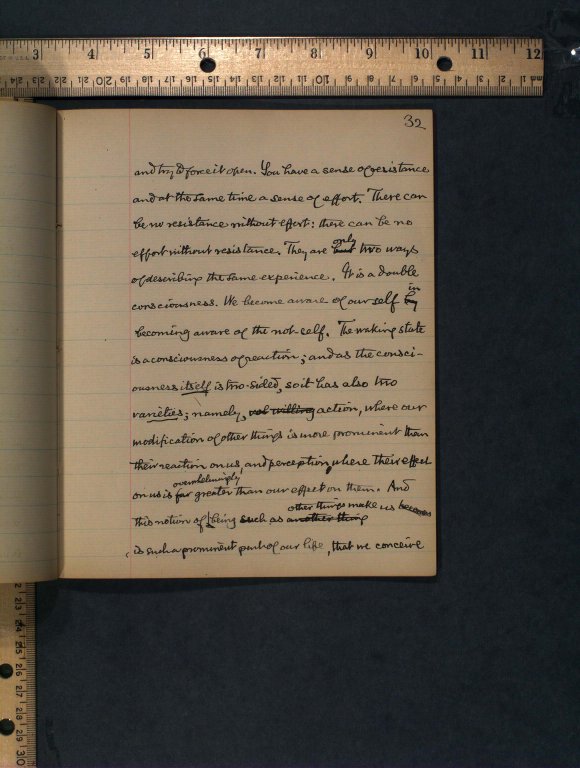 32
and try to force it open. You have a sense of resistance
and at the same time a sense of effort. There can
be no resistance without effort: there can be no
effort without resistance. They are but only two ways
of describing the same experience. It is a double
consciousness. We become aware of our self by in
becoming aware of the not-self. The waking state
is a consciousness of reaction; and as the consci-
ousness itself is two-sided, so it has also two
varieties; namely, vol willing action, where our
modification of other things is more prominent than
their reaction on us, and perception, where their effect
on us is far overwhelmingly greater than our effect on them. And
this notion of being such as another thing other things make us becomes
is such a prominent part of our life, that we conceive